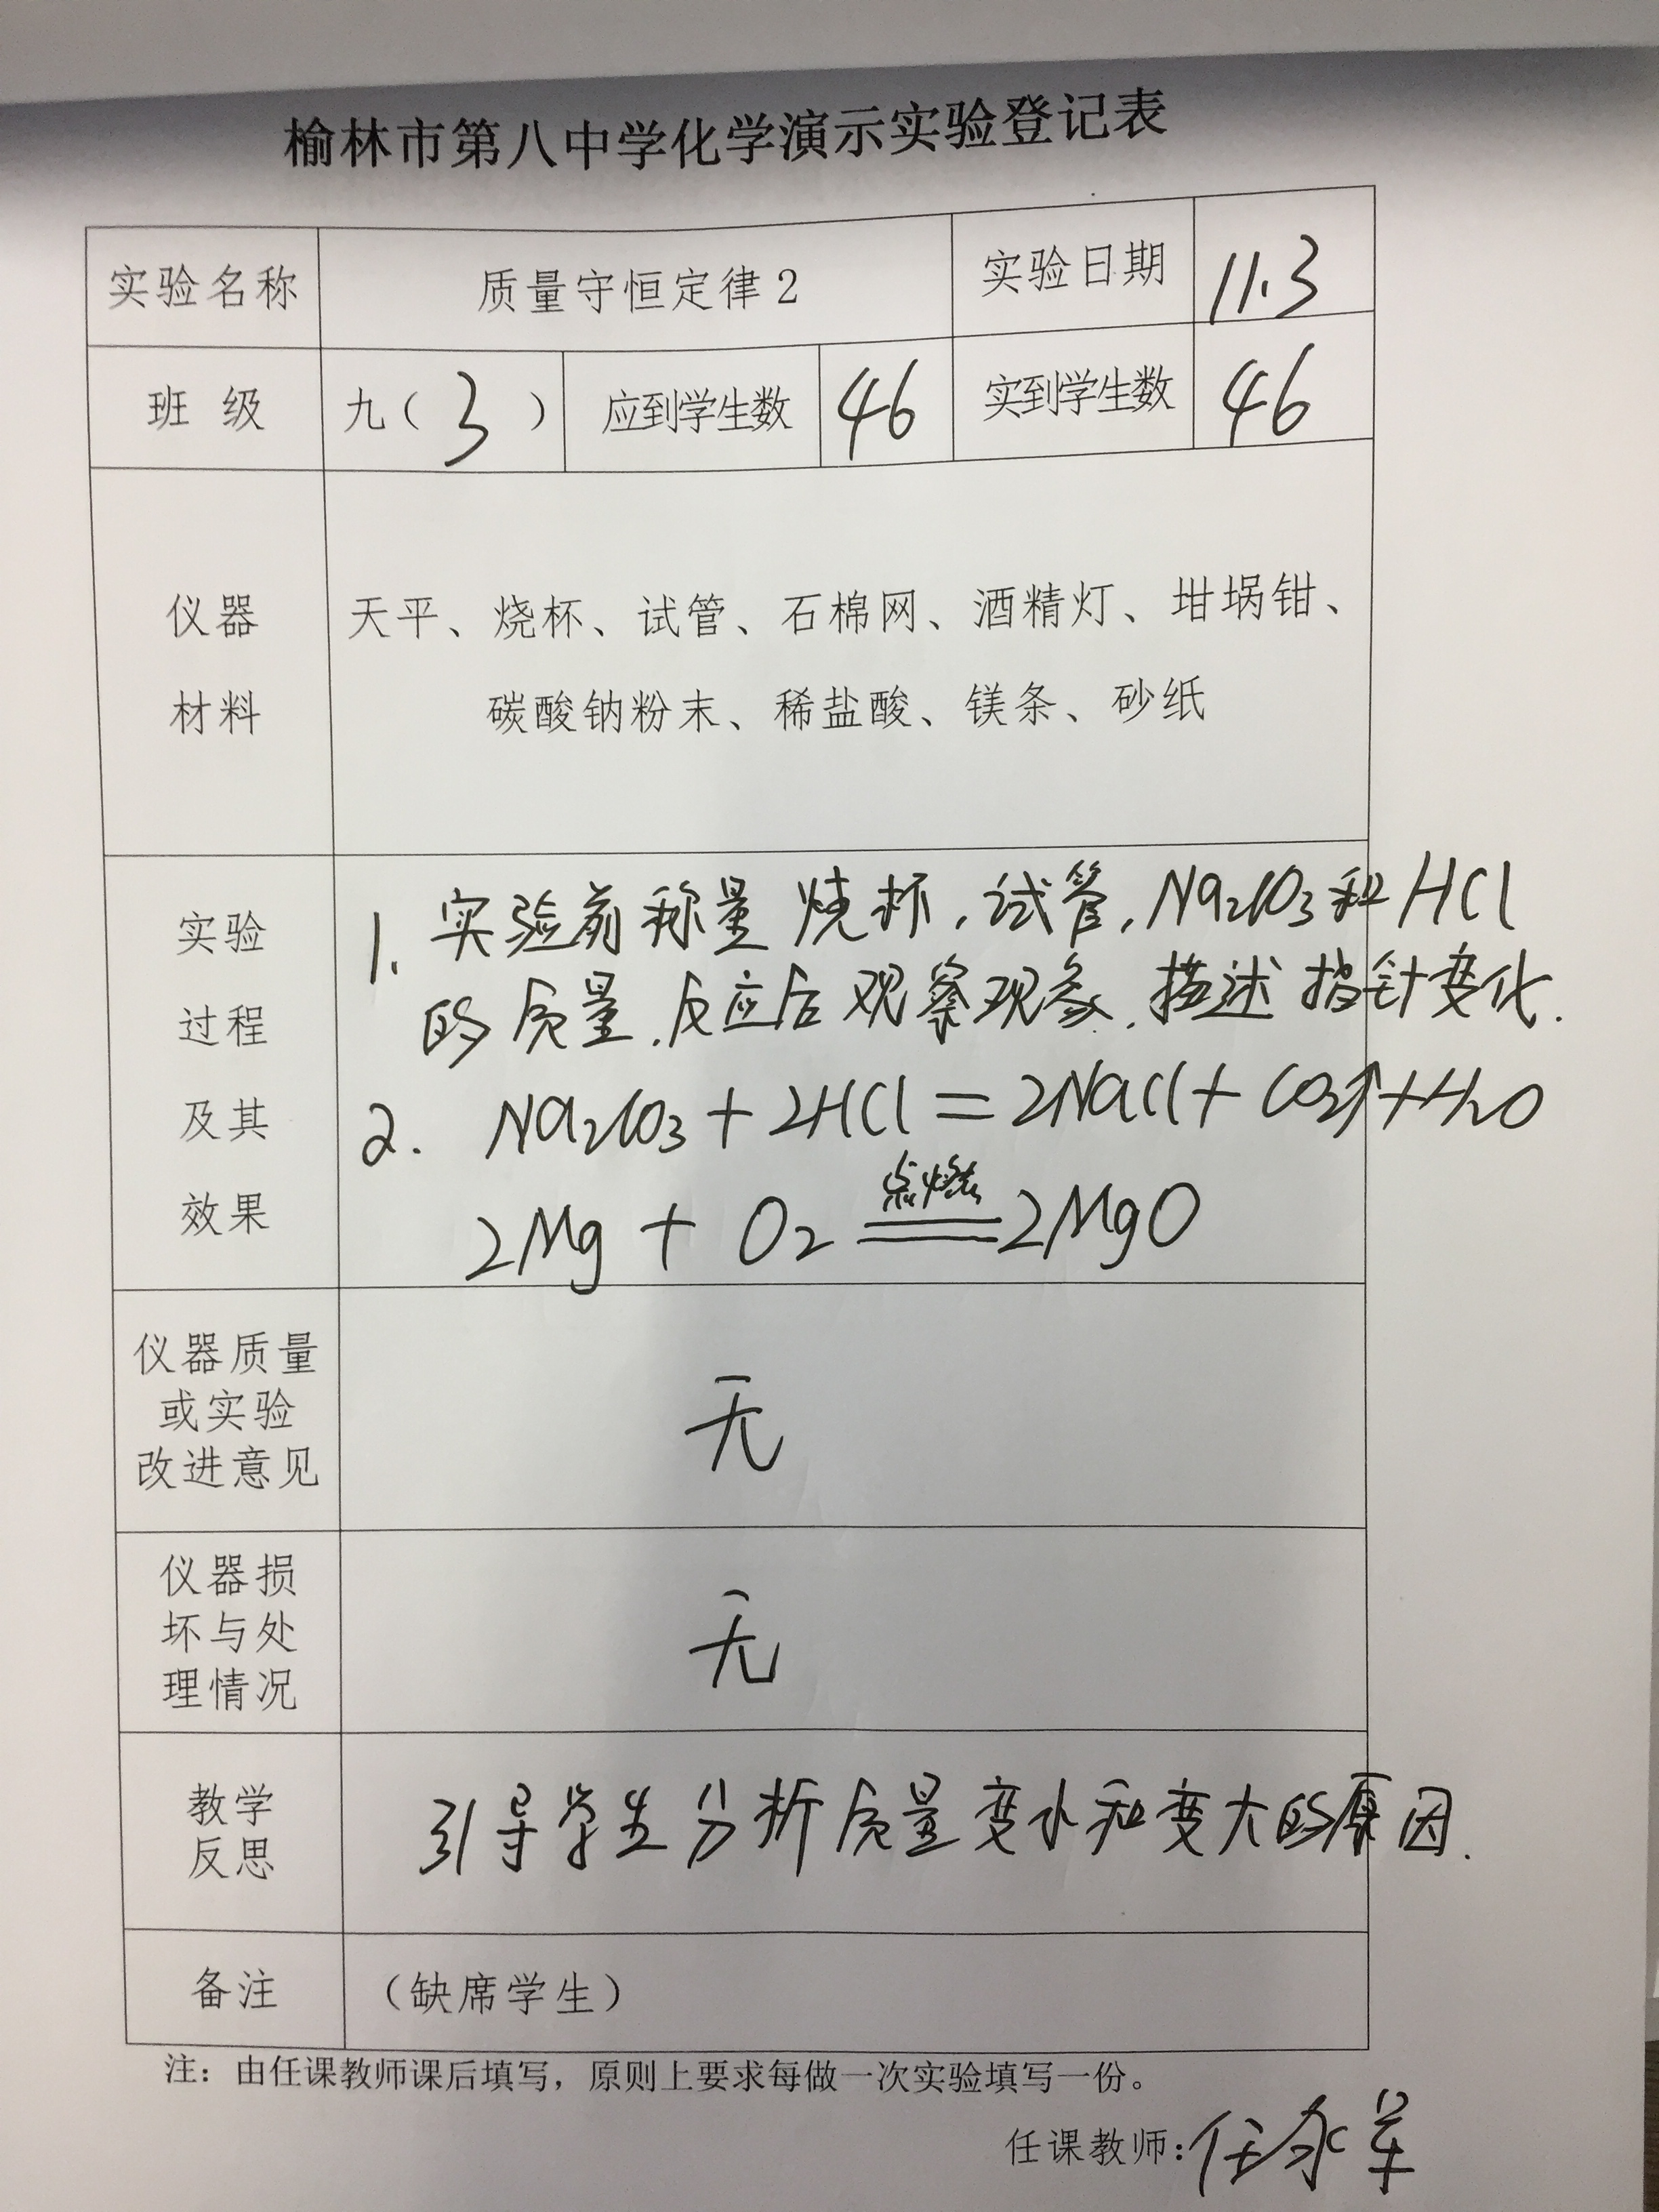 榆林市第八中学化学演示实验登记表
实验名称 质量守恒定律2 实验日期 11.3
班 级 九（3） 应到学生数 46 实到学生数 46
仪器
材料
天平、烧杯、试管、石棉网、酒精灯、坩埚钳、
碳酸钠粉末、稀盐酸、镁条、砂纸
实验
过程
及其
效果
1. 实验前称量烧杯,试管,Na₂CO₃和HCl
的质量.反应后观察现象.描述指针变化.
2. Na₂CO₃+2HCl=2NaCl+CO₂↑+H₂O
点燃
2Mg+O₂=2MgO
仪器质量
或实验
改进意见
无
仪器损
坏与处
理情况
无
教学
反思
引导学生分析质量变小和变大的原因.
备注 （缺席学生）
注：由任课教师课后填写，原则上要求每做一次实验填写一份。
任课教师:任永